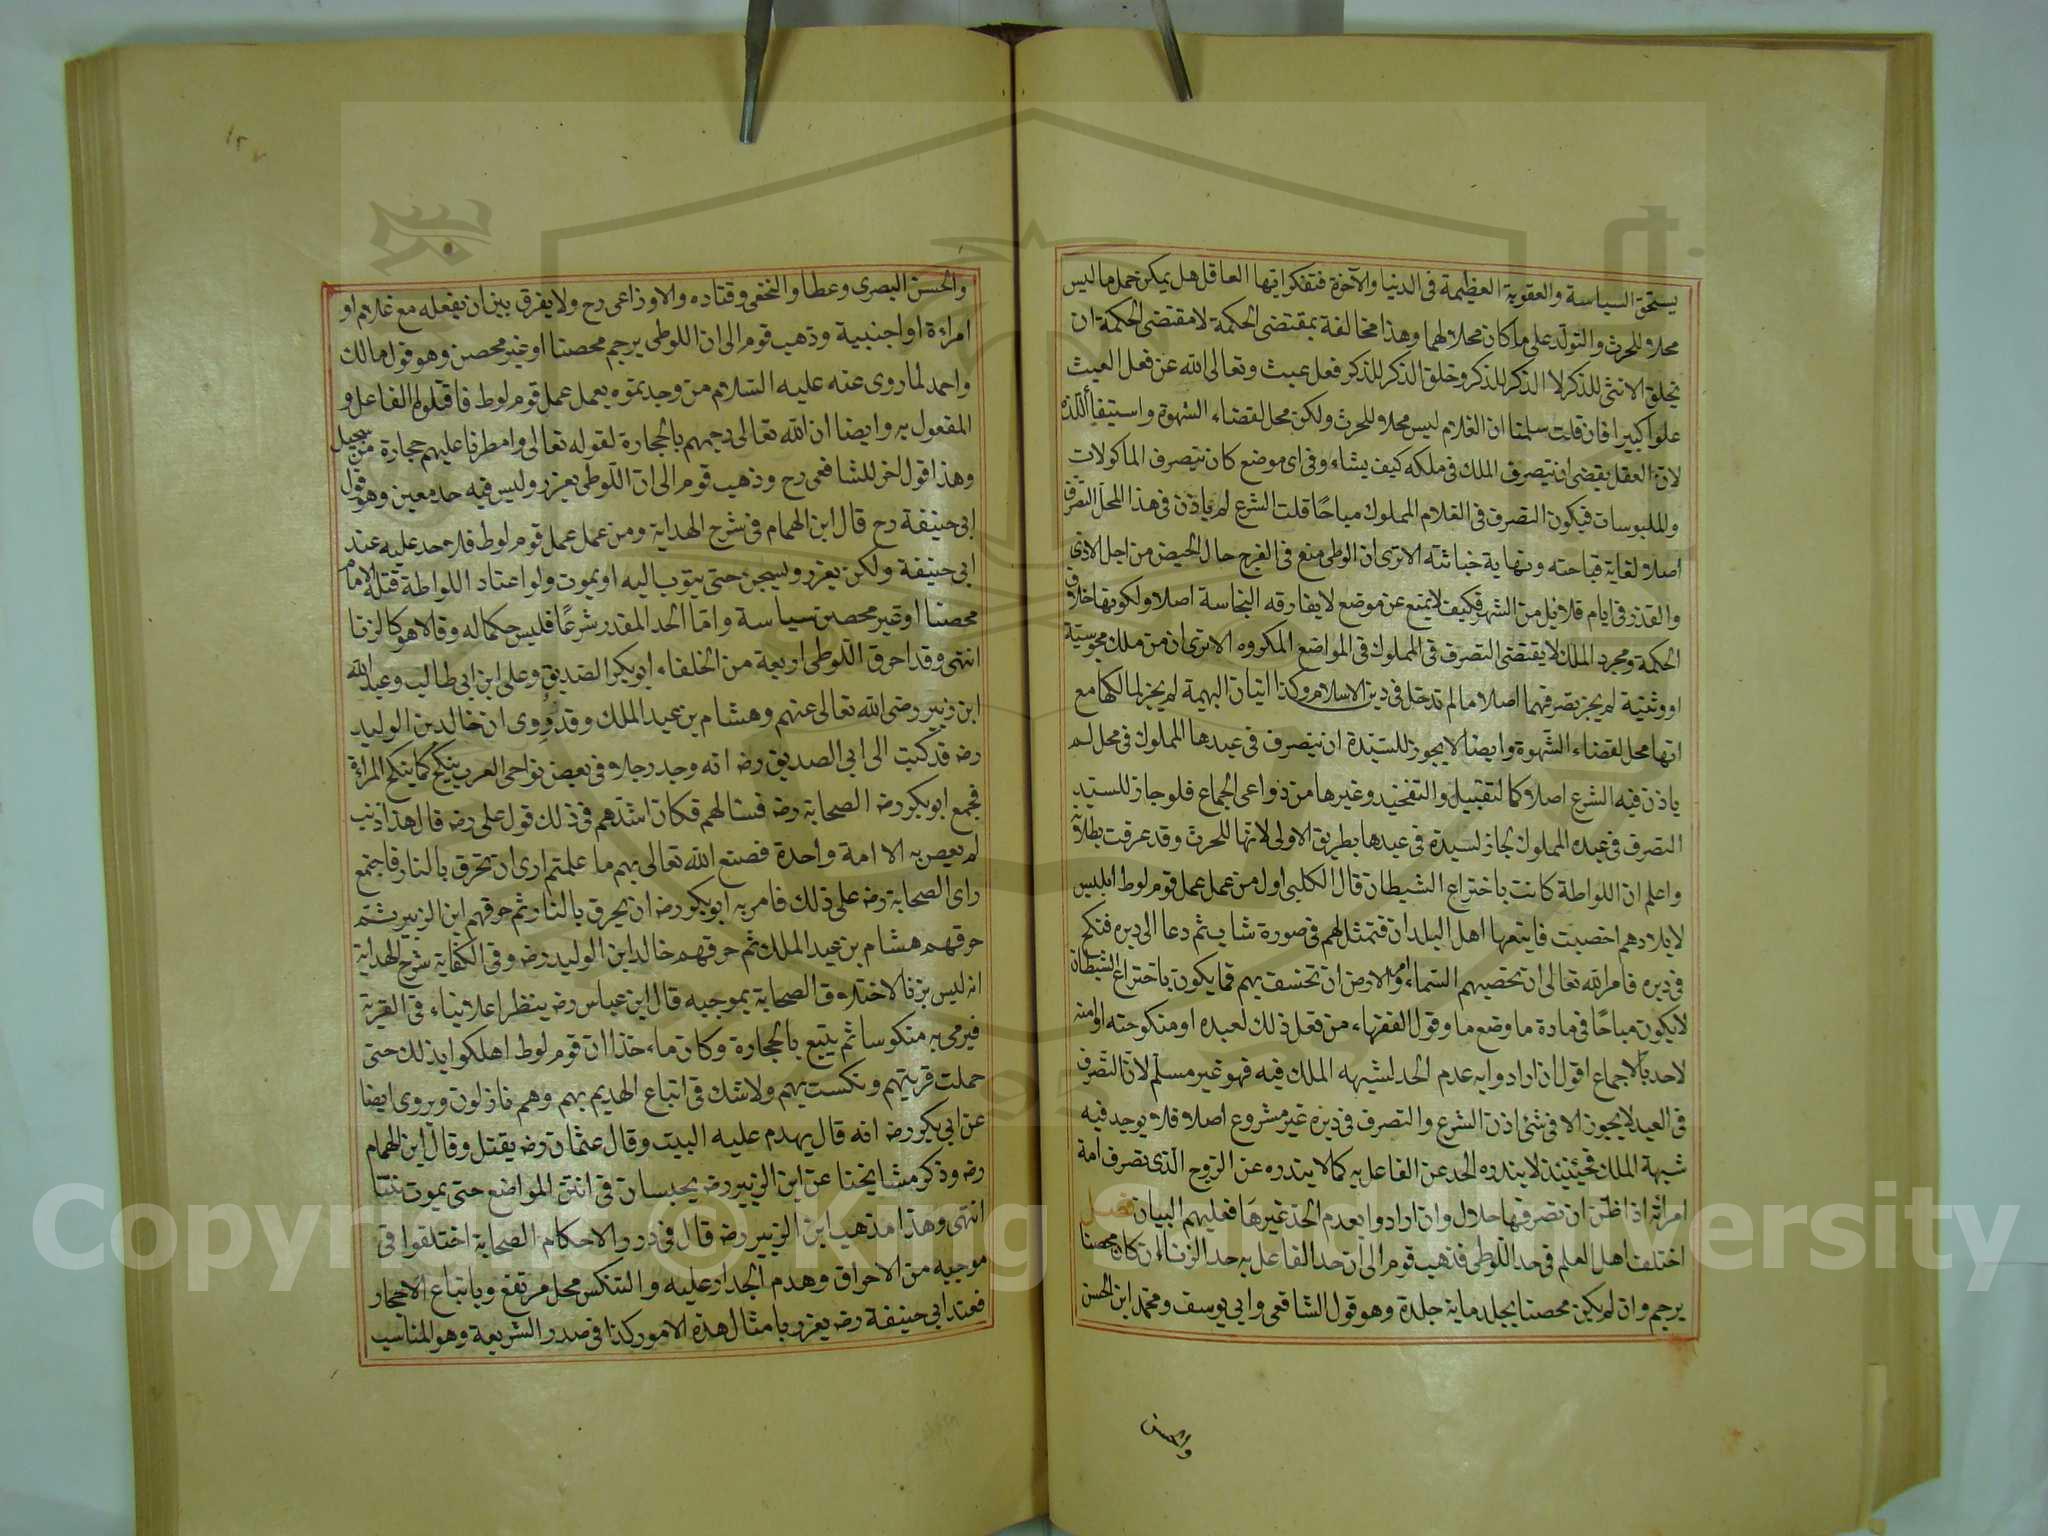 يستحق السياسة والعقوبة العظيمة فى الدنيا والآخرة فتفكر ايها العاقل هل يمكن حمل ما ليس
محلا للحرث والتولد على ما كان محلا لهما وهذا مخالفة بمقتضى الحكمة لا مقتضى الحكمة ان
يخلق الانثى للذكر لا الذكر للذكر وخلق الذكر للذكر فعل عبث وتعالى الله عن فعل العبث
علوا كبيرا فان قلت سلمنا ان الغلام ليس محلا للحرث ولكن محل لقضاء الشهوة واستيفاء اللذة
لان العقل يقضى ان يتصرف الملك فى ملكه كيف يشاء وفى اى موضع كان تتصرف المأكولات
والملبوسات فيكون التصرف فى الغلام المملوك مباحًا قلت الشرع لم ياذن فى هذا المحل التصرف
اصلا لغاية قباحته ونهاية خباثته الا ترى ان الوطى منع فى الفرج حال الحيض من اجل الاذى
والقذر فى ايام قلائل من الشهر فكيف لا يمنع عن موضع لا يفارقه النجاسة اصلا ولكونها خلاف
الحكمة ومجرد الملك لا يقتضى التصرف فى المملوك فى المواضع المكروه الا ترى ان من ملك مجوسية
او وثنية لم يجز تصرفهما اصلا ما لم تدخل فى دين الاسلام وكذا اتيان البهيمة لم يجز لمالكها مع
انها محل لقضاء الشهوة وايضا لا يجوز للسيدة ان يتصرف فى عبدها المملوك فى محل لم
ياذن فيه الشرع اصلا كالتقبيل والتفخيذ وغيرها من دواعى الجماع فلو جاز للسيد
التصرف فى عبده المملوك لجاز لسيدة فى عبدها بطريق الاولى لانها للحرث وقد عرفت بطلانه
واعلم ان اللواطة كانت باختراع الشيطان قال الكلبى اول من عمل عمل قوم لوط ابليس
لا بلادهم اخصبت فايتعها اهل البلدان فتمثل لهم فى صورة شاب ثم دعا الى دبره فنكح
فى دبره فامر الله تعالى ان تحصبهم السماء وامر الارض ان تخسف بهم فما يكون باختراع الشيطان
لا يكون مباحًا فى مادة ما وضع ما وقول الفقهاء من فعل ذلك لعبده او منكوحته او امته
لا حد بالاجماع اقول ان ارادوا به عدم الحد لشبهه الملك فيه فهو غير مسلم لان التصرف
فى العبد لا يجوز الا فى شئ اذن الشرع والتصرف فى دبره غير مشروع اصلا فلا يوجد فيه
شبهة الملك فحينئذ لا يندره الحد عن الفاعل به كما لا يندره عن الزوج الذى تصرف امة
امراته اذا ظن ان تصرفها حلال وان ارادوا بعدم الحد غيرها فعليهم البيان فصل
اختلف اهل العلم فى حد اللوطى فذهب قوم الى ان حد الفاعل به حد الزناء ان كان محصنا
يرجم وان لم يكن محصنا يجلد ماية جلدة وهو قول الشافعى وابى يوسف ومحمد ابن الحسن
والحسن
والحسن البصرى وعطا والنخعى وقتاده والاوزاعى رح ولا يفرق بين ان يفعله مع غلام او
امراءة او اجنبية وذهب قوم الى ان اللوطى يرجم محصنا او غير محصن وهو قول مالك
واحمد لما روى عنه عليه السلام من وجدتموه يعمل عمل قوم لوط فاقتلوا الفاعل و
المفعول به وايضا ان الله تعالى رجمهم بالحجارة لقوله تعالى وامطرنا عليهم حجارة من سجيل
وهذا قول اخر للشافعى رح وذهب قوم الى ان اللوطى يعزر وليس فيه حد معين وهو قول
ابى حنيفة رح قال ابن الهمام فى شرح الهداية ومن عمل عمل قوم لوط فلا حد عليه عند
ابى حنيفة ولكن يعزر ويسجن حتى يتوب اليه او يموت ولو اعتاد اللواطة قتله الامام
محصنا او غير محصن سياسة واما الحد المقدر شرعًا فليس حكما له وقالا هو كالزنا
انتهى وقد احرق اللوطى اربعة من الخلفاء ابو بكر الصديق وعلى ابن ابى طالب وعبد الله
ابن زبير رضى الله تعالى عنهم وهشام بن عبد الملك وقد رُوى ان خالد بن الوليد
رضه قد كتب الى ابى الصديق رضه انه وجد رجلا فى بعض نواحى العرب ينكح كما ينكح المراة
فجمع ابو بكر رضه الصحابة رضه فسالهم فكان اشدهم فى ذلك قول على رضه قال هذا ذنب
لم يعص به الا امة واحدة فصنع الله تعالى بهم ما علمتم ارى ان تحرق بالنار فاجتمع
راى الصحابة رضه على ذلك فامر به ابو بكر رضه ان يحرق بالنار ثم حرقهم ابن الزبير ثم
حرقهم هشام بن عبد الملك ثم حرقهم خالد ابن الوليد رضه وفى الكفاية شرح الهداية
انه ليس بزنا لاختلاف الصحابة بموجبه قال ابن عباس رضه ينظر اعلا بناء فى القرية
فيرمى به منكوسا ثم يتبع بالحجارة وكان ماءخذا ان قوم لوط اهلكوا بذلك حتى
حملت قريتهم ونكست بهم ولا شك فى اتباع الهديم بهم وهم نازلون ويروى ايضا
عن ابى بكر رضه انه قال يهدم عليه البيت وقال عثمان رضه يقتل وقال ابن الهمام
رضه وذكر مشايخنا عن ابن الزبير رضه يحبسان فى انتن المواضع حتى يموت نتنا
انتهى وهذا مذهب ابن الزبير رضه قال فى درر الاحكام الصحابة اختلفوا فى
موجبه من الاحراق وهدم الجدار عليه والتنكس محل مرتفع وباتباع الاحجار
فعند ابى حنيفة رضه يعزر بامثال هذه الامور كذا فى صدر الشريعة وهو المناسب
Copyright © King Saud University